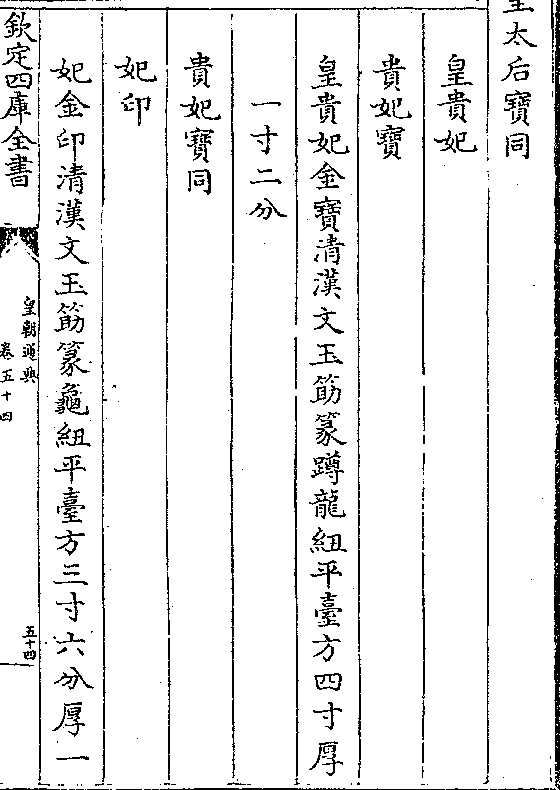 皇太后寶同
皇貴妃
貴妃寶
皇貴妃金寶清漢文玉筯篆蹲龍紐平臺方四寸厚
一寸二分
貴妃寶同
妃印
妃金印清漢文玉筯篆龜紐平臺方三寸六分厚一
欽定四庫全書
皇朝通典
卷五十四
五十四